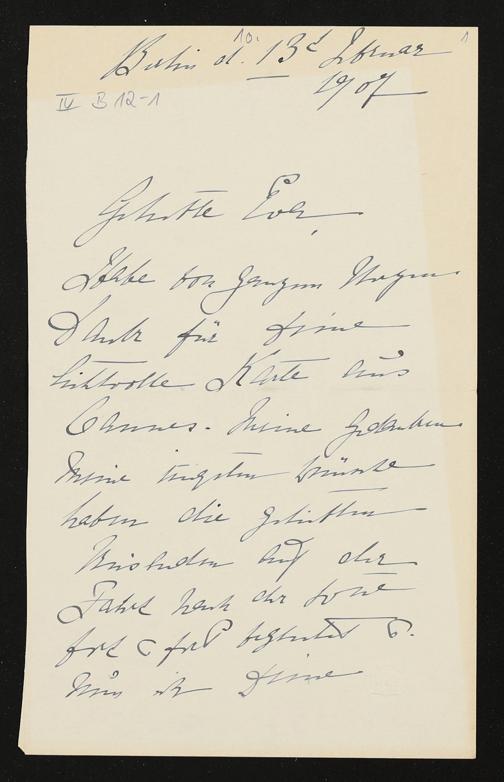 10.
1
Berlin d. 13t Februar
1907
IV B 12-1
Geliebte Eva,
Habe von ganzem Herzen
Dank für Deine
liebevolle Karte aus
Cannes. Meine Gedanken
meine innigsten Wünsche
haben die geliebten
Reisenden auf der
Fahrt nach der Sonne
fort fort begleitet
Nun ist Deine